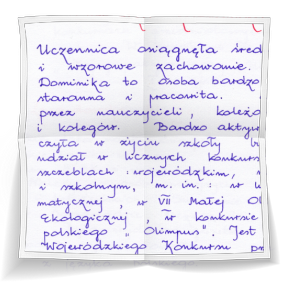 Uczennica osiągnęła śred
i wzorowe zachowanie.
Dominika to osoba bardzo
staranna i pracowita.
przez nauczycieli, koleżo
i kolegów. Bardzo aktyw
czyła w życiu szkoły b
udział w licznych konkurs
szczeblach: wojewódzkim,
i szkolnym, m. in.: w
matycznej, w VII Małej Ol
Ekologicznej, w konkursie
polskiego "Olimpus". Jest
Wojewódzkiego Konkursu pr